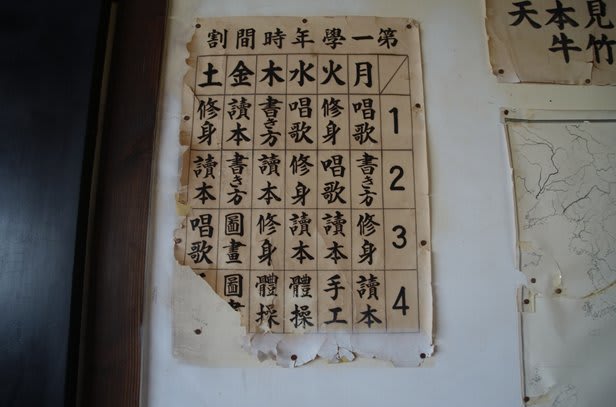 第一學年時間割
月 火 水 木 金 土
1 唱歌 修身 唱歌 書き方 讀本 修身
2 書き方 唱歌 修身 讀本 書き方 讀本
3 修身 讀本 讀本 修身 圖畫 唱歌
4 讀本 手工 體操 體操 圖畫
見竹
本牛
天